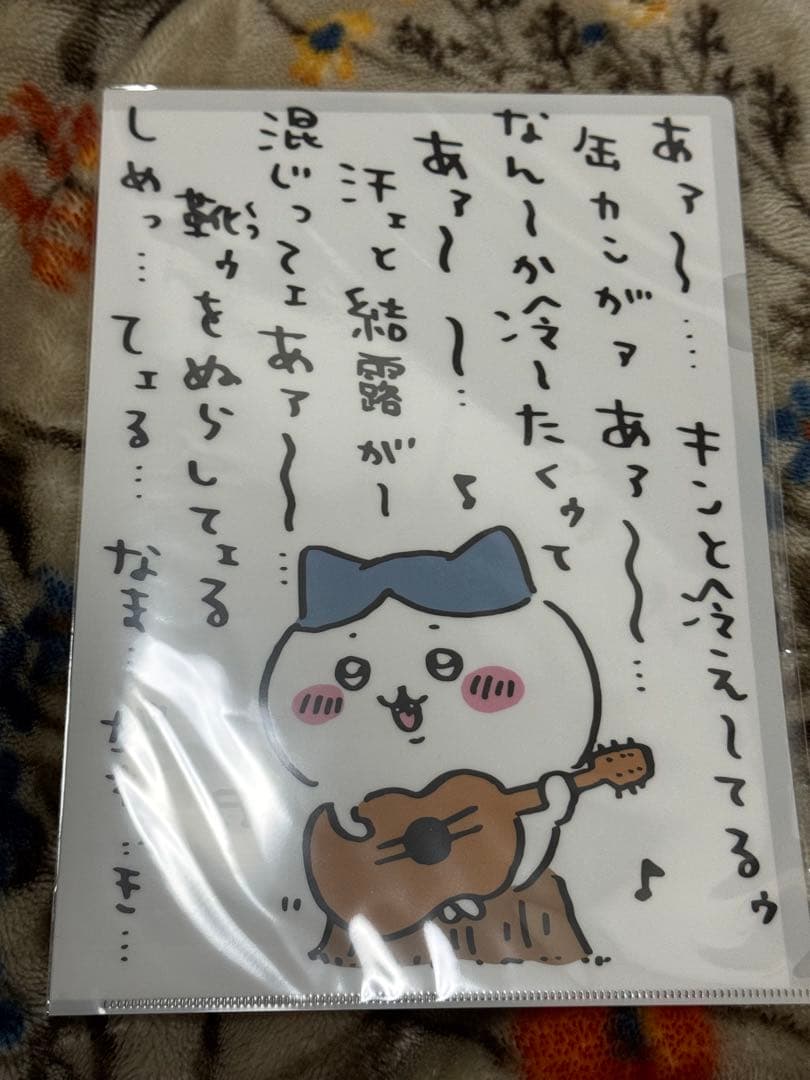 あァ〜…… キンと冷え〜てるゥ
缶カンがァ あァ〜〜…
なん〜か冷〜たくゥて
あァ〜 〜…
汗ェと結露が〜
混じってェ あァ〜〜…
靴くつゥをぬらしてェる
しめっ…てェる… なま… …き…